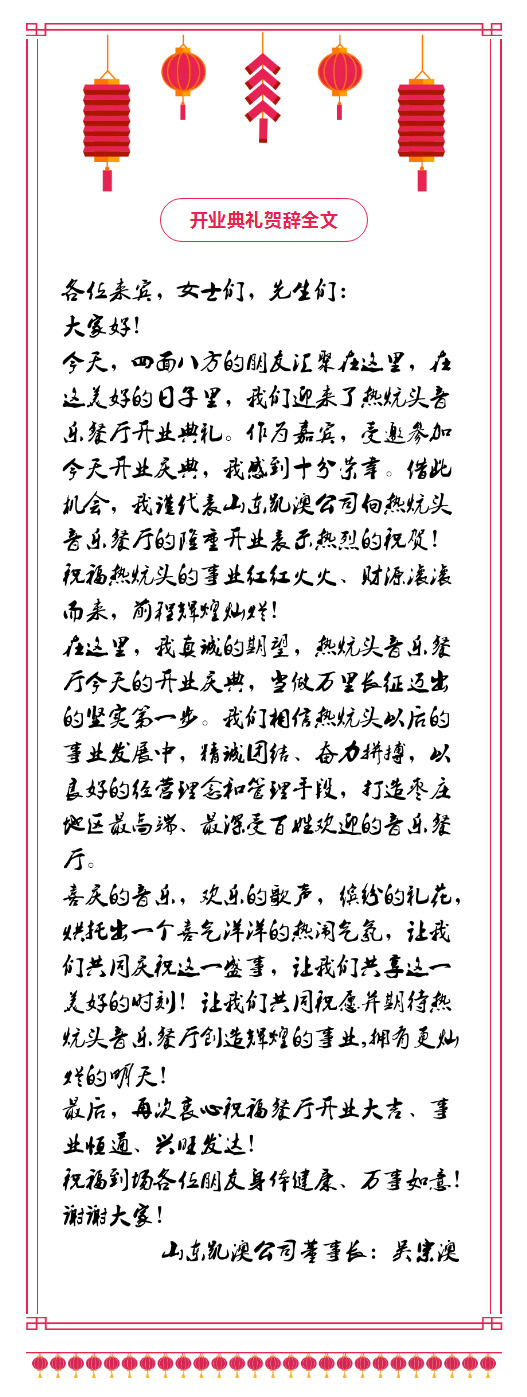 开业典礼贺辞全文
各位来宾，女士们，先生们：
大家好！
今天，四面八方的朋友汇聚在这里，在
这美好的日子里，我们迎来了热炕头音
乐餐厅开业典礼。作为嘉宾，受邀参加
今天开业庆典，我感到十分荣幸。借此
机会，我谨代表山东凯澳公司向热炕头
音乐餐厅的隆重开业表示热烈的祝贺！
祝福热炕头的事业红红火火、财源滚滚
而来，前程辉煌灿烂！
在这里，我真诚的期望，热炕头音乐餐
厅今天的开业庆典，当做万里长征迈出
的坚实第一步。我们相信热炕头以后的
事业发展中，精诚团结、奋力拼搏，以
良好的经营理念和管理手段，打造枣庄
地区最高端、最深受百姓欢迎的音乐餐
厅。
喜庆的音乐，欢乐的歌声，缤纷的礼花，
烘托出一个喜气洋洋的热闹气氛，让我
们共同庆祝这一盛事，让我们共享这一
美好的时刻！让我们共同祝愿并期待热
炕头音乐餐厅创造辉煌的事业,拥有更灿
烂的明天！
最后，再次衷心祝福餐厅开业大吉、事
业恒通、兴旺发达！
祝福到场各位朋友身体健康、万事如意！
谢谢大家！
山东凯澳公司董事长：吴宗澳